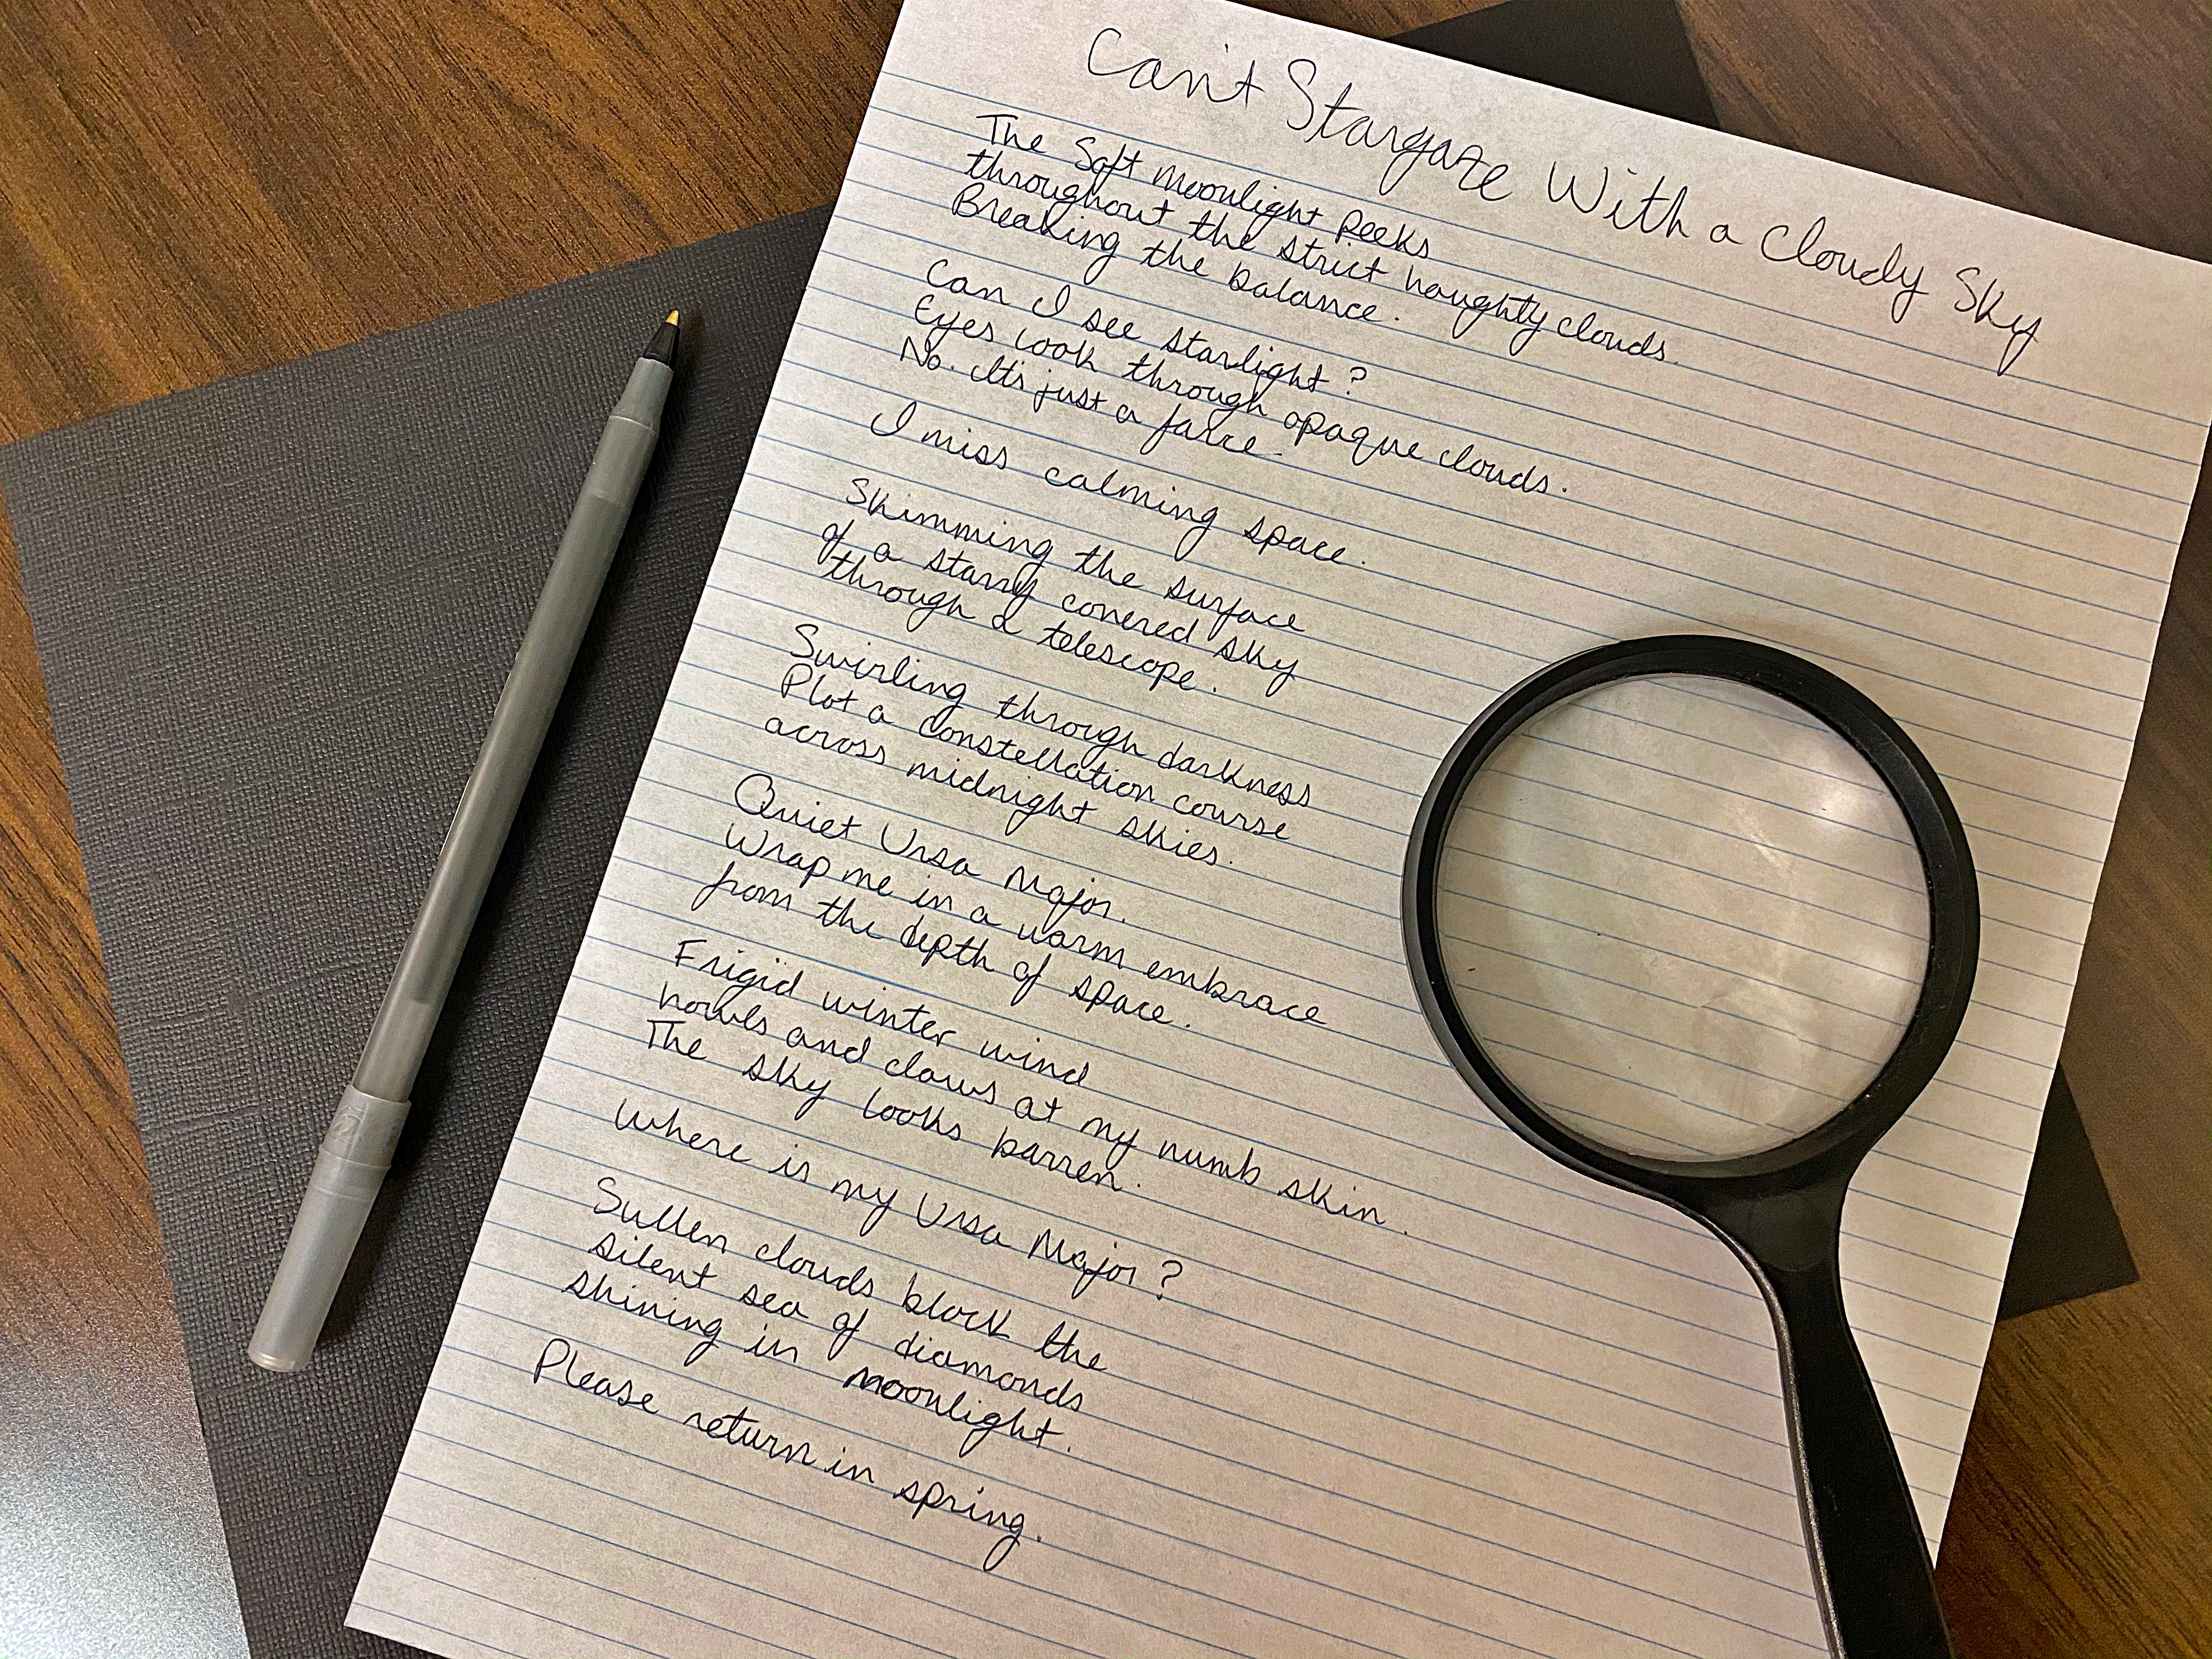 Can't Stargaze With a Cloudy Sky
The Soft moonlight Peeks
throughout the strict haughty clouds.
Breaking the balance.
Can I see starlight?
Eyes look through opaque clouds.
No. It's just a farce.
I miss calming space.
Skimming the surface
of a starry covered sky
through a telescope.
Swirling through darkness
Plot a Constellation course
across midnight skies.
Quiet Ursa Major.
Wrap me in a warm embrace
from the depth of space.
Frigid winter wind
howls and claws at my numb skin.
The sky looks barren.
Where is my Ursa Major?
Sullen clouds block the
silent sea of diamonds
shining in moonlight.
Please return in spring.